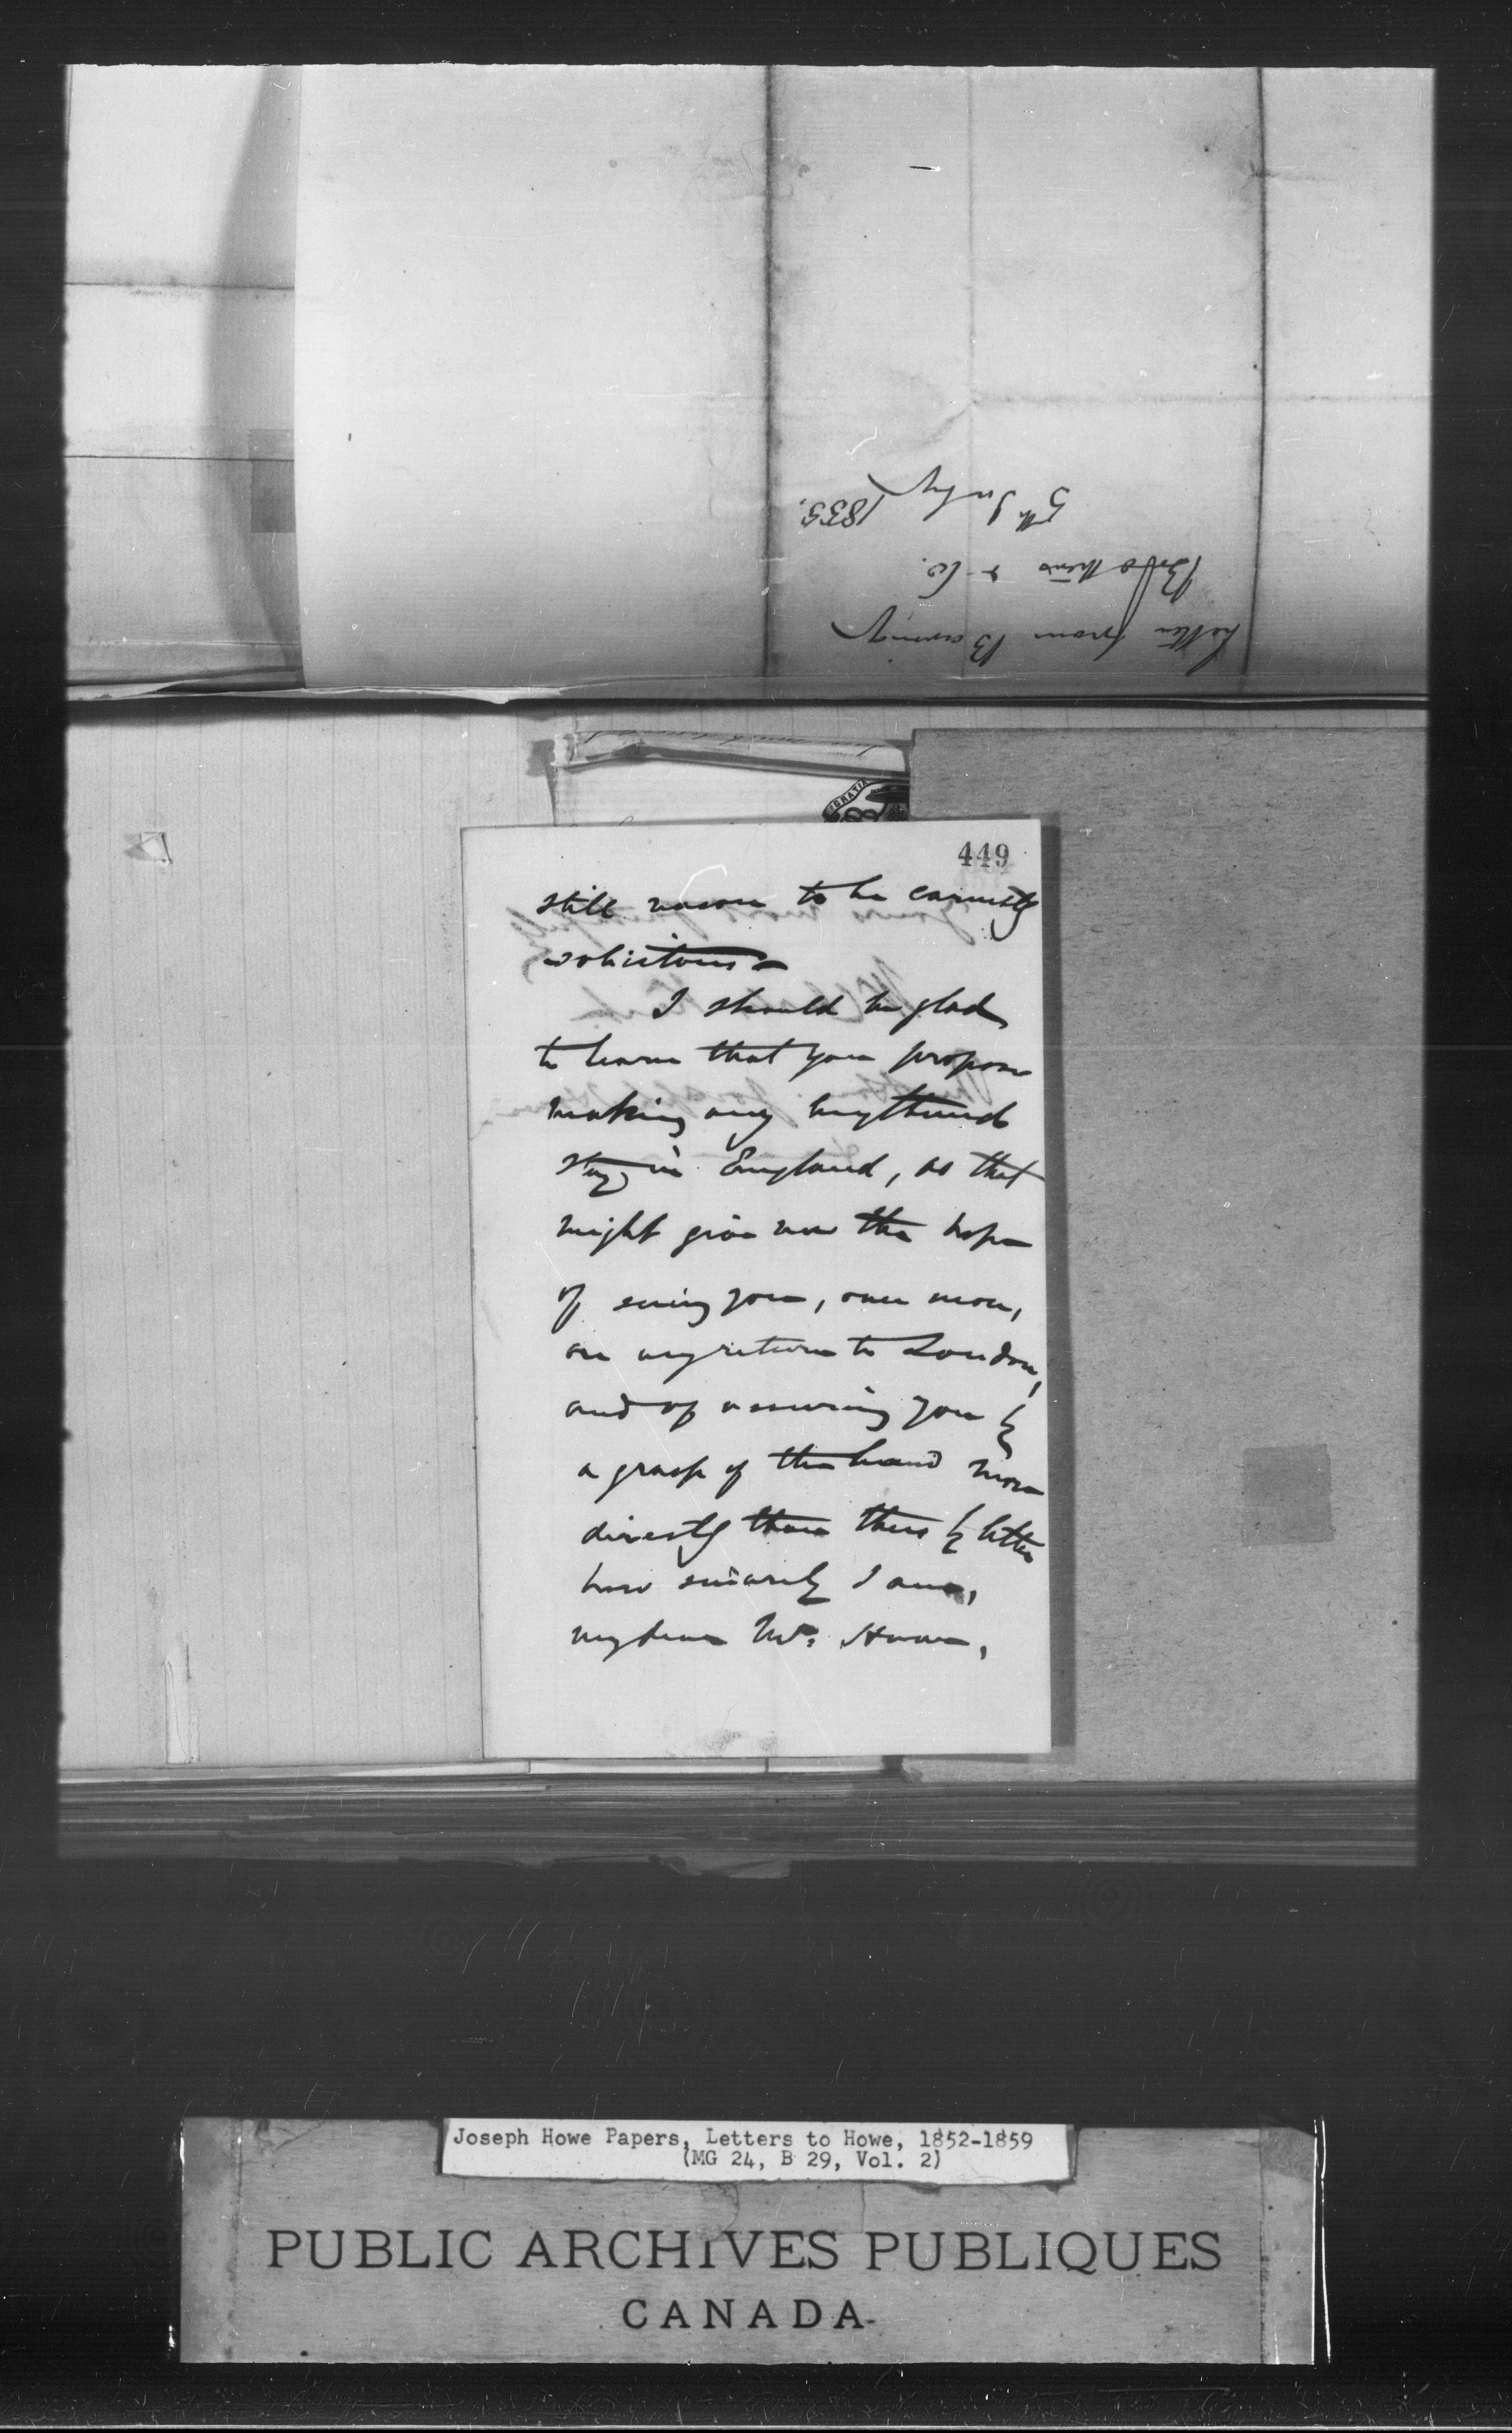 Letter from Baring
Brothers & Co.
5th July 1855.
449
still reason to be earnestly
solicitous
I should be glad
to learn that you propose
making any lengthened
stay in England, as that
might give me the hope
of seeing you, once more,
on my return to London,
and of assuring you by
a grasp of the hand more
directly than thus by letter
how sincerely I am,
my dear Mr. Howe,
GRATIA
Joseph Howe Papers, Letters to Howe, 1852-1859
(MG 24, B 29, Vol. 2)
PUBLIC ARCHIVES PUBLIQUES
CANADA